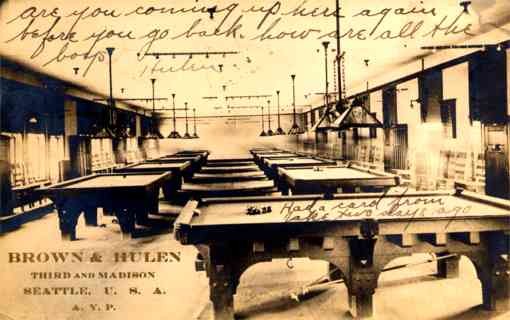 are you coming up here again
before you go back. how are all the
boys
Hulen.
Had a card from
two days ago
BROWN & HULEN
THIRD AND MADISON
SEATTLE, U. S. A.
A. Y. P.